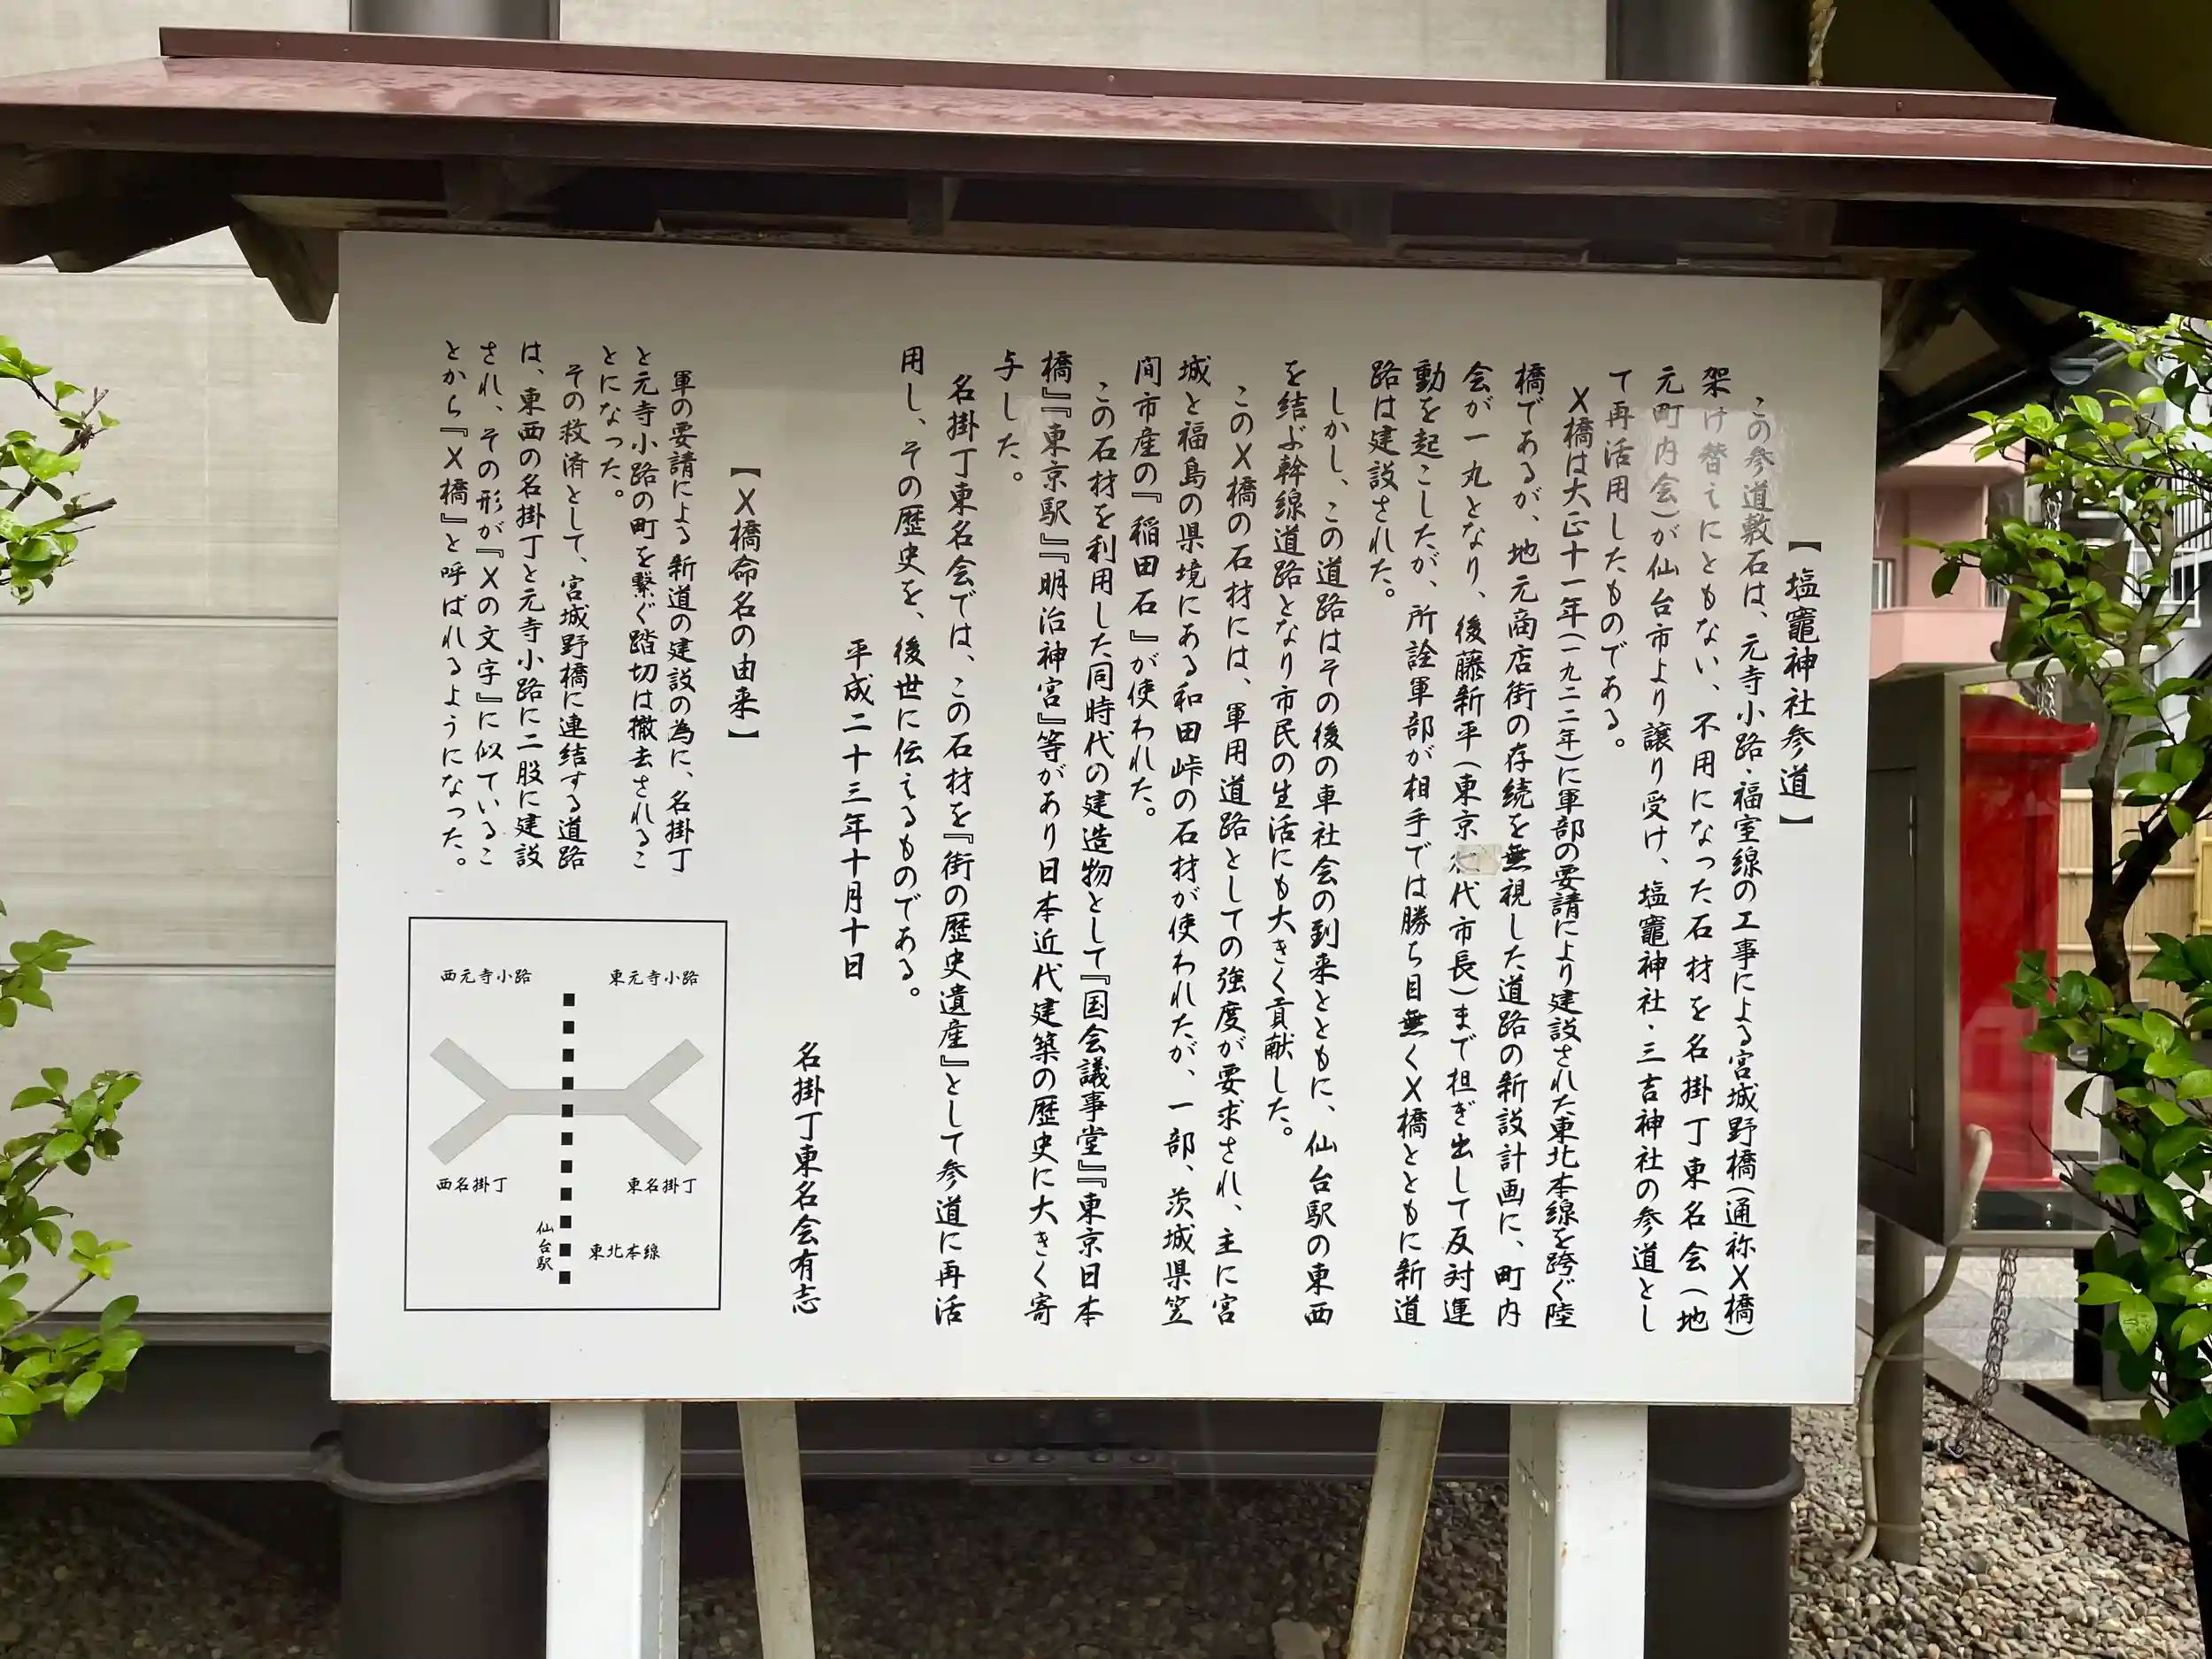 【塩竈神社参道】
この参道敷石は、元寺小路・福室線の工事による宮城野橋(通称X橋)
架け替えにともない、不用になった石材を名掛丁東名会(地
元町内会)が仙台市より譲り受け、塩竈神社・三吉神社の参道とし
て再活用したものである。
X橋は大正十一年(一九二二年)に軍部の要請により建設された東北本線を跨ぐ陸
橋であるが、地元商店街の存続を無視した道路の新設計画に、町内
会が一丸となり、後藤新平(東京代市長)まで担ぎ出して反対運
動を起こしたが、所詮軍部が相手では勝ち目無くX橋とともに新道
路は建設された。
しかし、この道路はその後の車社会の到来とともに、仙台駅の東西
を結ぶ幹線道路となり市民の生活にも大きく貢献した。
このX橋の石材には、軍用道路としての強度が要求され、主に宮
城と福島の県境にある和田峠の石材が使われたが、一部、茨城県笠
間市産の『稲田石』が使われた。
この石材を利用した同時代の建造物として『国会議事堂』『東京日本
橋』『東京駅』『明治神宮』等があり日本近代建築の歴史に大きく寄
与した。
名掛丁東名会では、この石材を『街の歴史遺産』として参道に再活
用し、その歴史を、後世に伝えるものである。
平成二十三年十月十日
名掛丁東名会有志
【X橋命名の由来】
軍の要請による新道の建設の為に、名掛丁
と元寺小路の町を繋ぐ踏切は撤去されるこ
とになった。
その救済として、宮城野橋に連結する道路
は、東西の名掛丁と元寺小路に二股に建設
され、その形が『Xの文字』に似ているこ
とから『X橋』と呼ばれるようになった。
西元寺小路
東元寺小路
西名掛丁
東名掛丁
仙台駅
東北本線